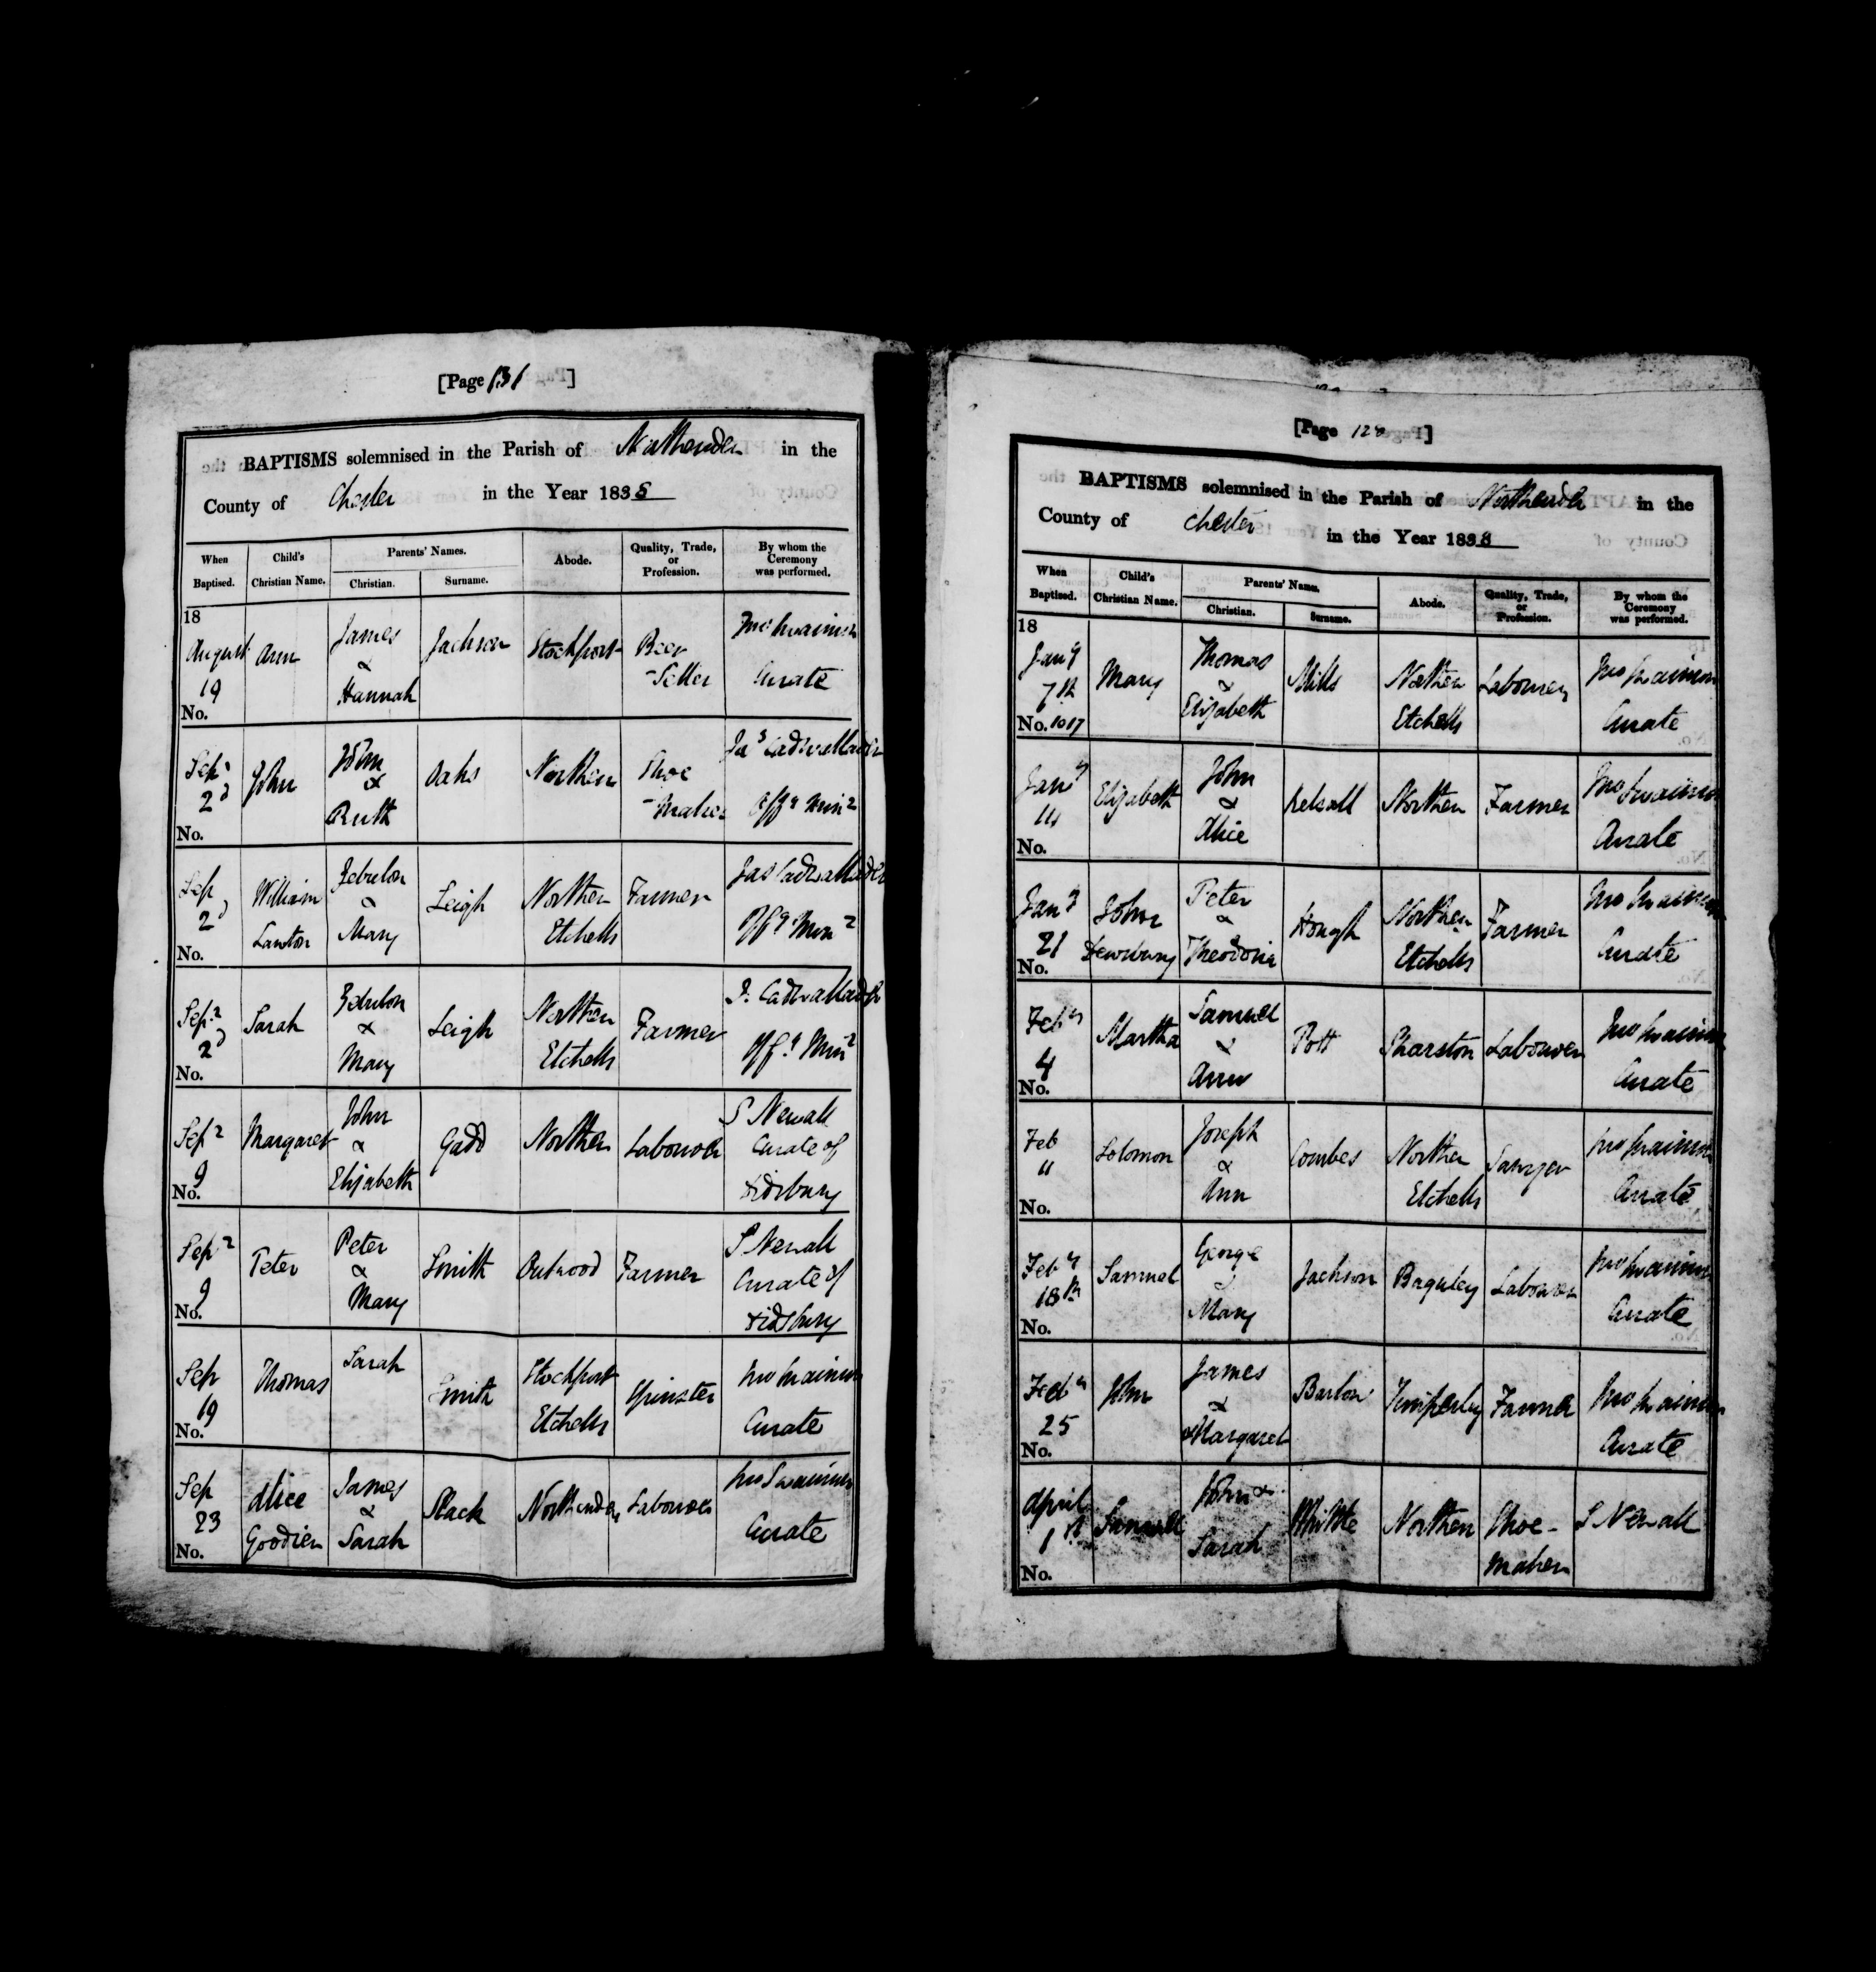 [Page 131]
BAPTISMS solemnised in the Parish of Northenden in the
County of Chester in the Year 1838
When Baptised. Child's Christian Name. Parents' Names. Christian. Surname. Abode. Quality, Trade, or Profession. By whom the Ceremony was performed.
18
August 19 Ann James & Hannah Jackson Stockport Beer-Seller Jno Swainson Curate
No.
Sepr 2d John John & Ruth Oaks Northen Shoe-maker Jas Cadwallader Offg Minr
No.
Sep 2d William Lawton Zebulon & Mary Leigh Northen Etchells Farmer Jas Cadwallader Offg Minr
No.
Sepr 2d Sarah Zebulon & Mary Leigh Northen Etchells Farmer J. Cadwallader Offg Minr
No.
Sepr 9 Margaret John & Elizabeth Gadd Northen Labourer S Newall Curate of Didsbury
No.
Sepr 9 Peter Peter & Mary Smith Outwood Farmer S Newall Curate of Didsbury
No.
Sep 19 Thomas Sarah Smith Stockport Etchells Spinster Jno Swainson Curate
No.
Sep 23 Alice Goodier James & Sarah Slack Northenden Labourer Jno Swainson Curate
No.
[Page 128]
BAPTISMS solemnised in the Parish of Northenden in the
County of Chester in the Year 1838
When Baptised. Child's Christian Name. Parents' Names. Christian. Surname. Abode. Quality, Trade, or Profession. By whom the Ceremony was performed.
18
Jany 7th Mary Thomas & Elizabeth Mills Northen Etchells Labourer Jno Swainson Curate
No. 1017
Jany 14 Elizabeth John & Alice Kelsall Northen Farmer Jno Swainson Curate
No.
Jany 21 John Dewsbury Peter & Theodosia Hough Northen Etchells Farmer Jno Swainson Curate
No.
Feby 4 Martha Samuel & Ann Pott Sharston Labourer Jno Swainson Curate
No.
Feb 11 Solomon Joseph & Ann Coombes Northen Etchells Sawyer Jno Swainson Curate
No.
Feby 18th Samuel George & Mary Jackson Baguley Labourer Jno Swainson Curate
No.
Feby 25 John James & Margaret Burton Timperley Farmer Jno Swainson Curate
No.
April 1st Samuel John & Sarah Whittle Northen Shoe-maker S Newall
No.